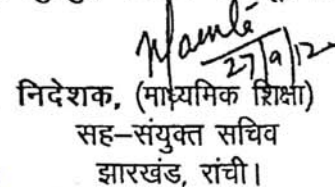 27/9/12
निदेशक, (माध्यमिक शिक्षा)
सह–संयुक्त सचिव
झारखंड, रांची।